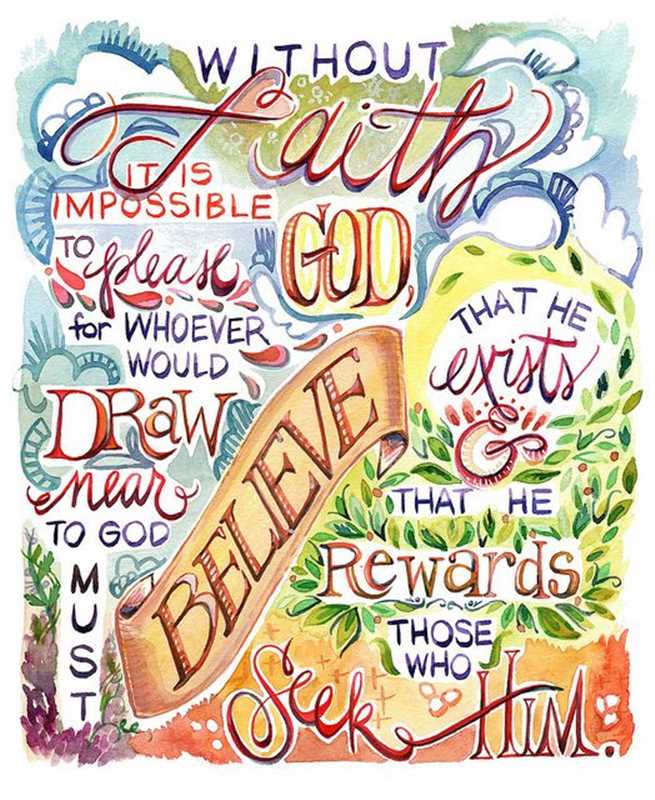 WITHOUT
Faith
IT IS
IMPOSSIBLE
TO please
GOD,
for WHOEVER
WOULD
DRAW
near
TO GOD
MUST
BELIEVE
THAT HE
exists
&
THAT HE
Rewards
THOSE
WHO
Seek HIM.